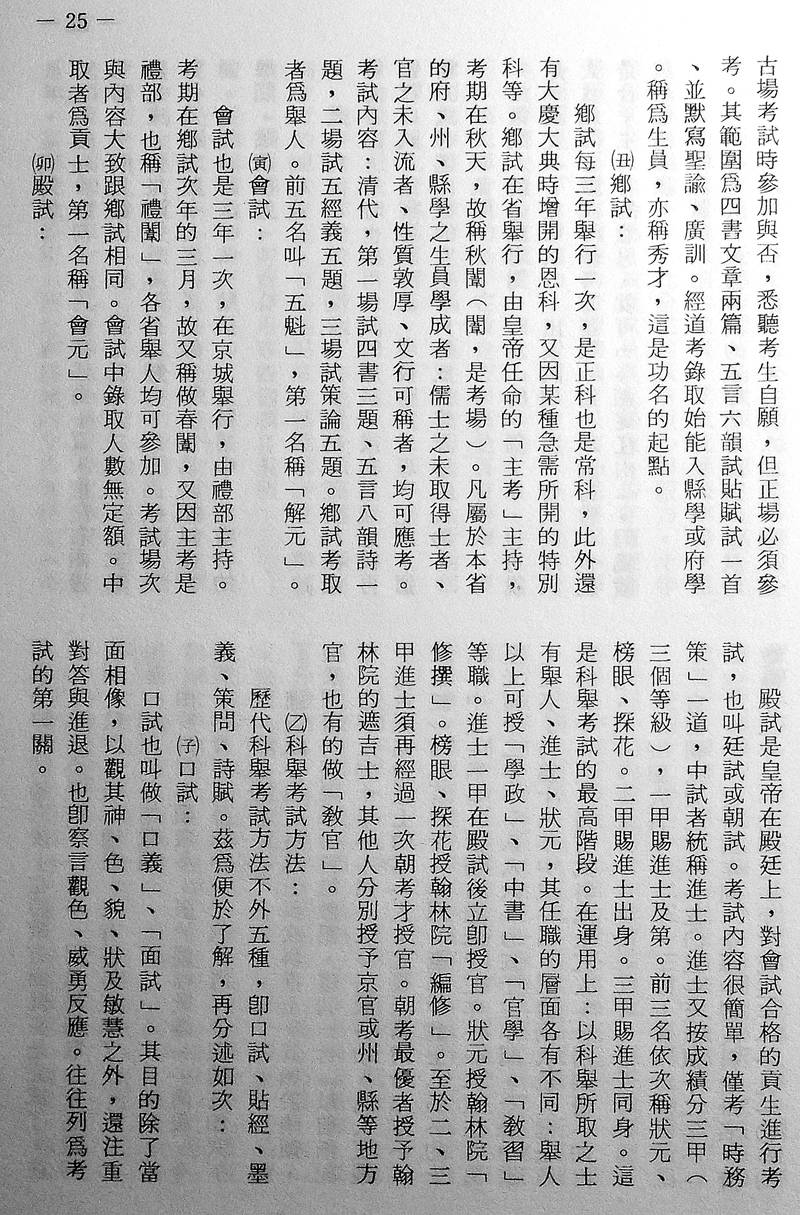 — 25 —
古場考試時參加與否，悉聽考生自願，但正場必須參
考。其範圍爲四書文章兩篇、五言六韻試貼賦試一首
、並默寫聖諭、廣訓。經道考錄取始能入縣學或府學
。稱爲生員，亦稱秀才，這是功名的起點。
㈪鄉試：
鄉試每三年舉行一次，是正科也是常科，此外還
有大慶大典時增開的恩科，又因某種急需所開的特別
科等。鄉試在省舉行，由皇帝任命的「主考」主持，
考期在秋天，故稱秋闈（闈，是考場）。凡屬於本省
的府、州、縣學之生員學成者：儒士之未取得士者、
官之未入流者、性質敦厚、文行可稱者，均可應考。
考試內容：清代，第一場試四書三題、五言八韻詩一
題，二場試五經義五題，三場試策論五題。鄉試考取
者爲舉人。前五名叫「五魁」，第一名稱「解元」。
(寅)會試：
會試也是三年一次，在京城舉行，由禮部主持。
考期在鄉試次年的三月，故又稱做春闈，又因主考是
禮部，也稱「禮闈」，各省舉人均可參加。考試場次
與內容大致跟鄉試相同。會試中錄取人數無定額。中
取者爲貢士，第一名稱「會元」。
(卯)殿試：
殿試是皇帝在殿廷上，對會試合格的貢生進行考
試，也叫廷試或朝試。考試內容很簡單，僅考「時務
策」一道，中試者統稱進士。進士又按成績分三甲（
三個等級），一甲賜進士及第。前三名依次稱狀元、
榜眼、探花。二甲賜進士出身。三甲賜進士同身。這
是科舉考試的最高階段。在運用上：以科舉所取之士
有舉人、進士、狀元，其任職的層面各有不同：舉人
以上可授「學政」、「中書」、「官學」、「教習」
等職。進士一甲在殿試後立卽授官。狀元授翰林院「
修撰」。榜眼、探花授翰林院「編修」。至於二、三
甲進士須再經過一次朝考才授官。朝考最優者授予翰
林院的遮吉士，其他人分別授予京官或州、縣等地方
官，也有的做「教官」。
(乙)科舉考試方法：
歷代科舉考試方法不外五種，卽口試、貼經、墨
義、策問、詩賦。茲爲便於了解，再分述如次：
(子)口試：
口試也叫做「口義」、「面試」。其目的除了當
面相像，以觀其神、色、貌、狀及敏慧之外，還注重
對答與進退。也卽察言觀色、威勇反應。往往列爲考
試的第一關。